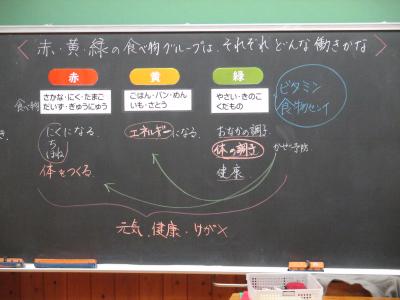 <赤・黄・緑の食べ物グループは、それぞれどんな働きかな>
赤
黄
緑
食べ物
さかな・にく・たまご
だいず・ぎゅうにゅう
ごはん・パン・めん
いも・さとう
やさい・きのこ
くだもの
ビタミン
食物センイ
にくになる。
ち
ほね
体をつくる。
エネルギーになる。
おなかの調子
体の調子
かぜの予防
健康
元気、健康・けが×